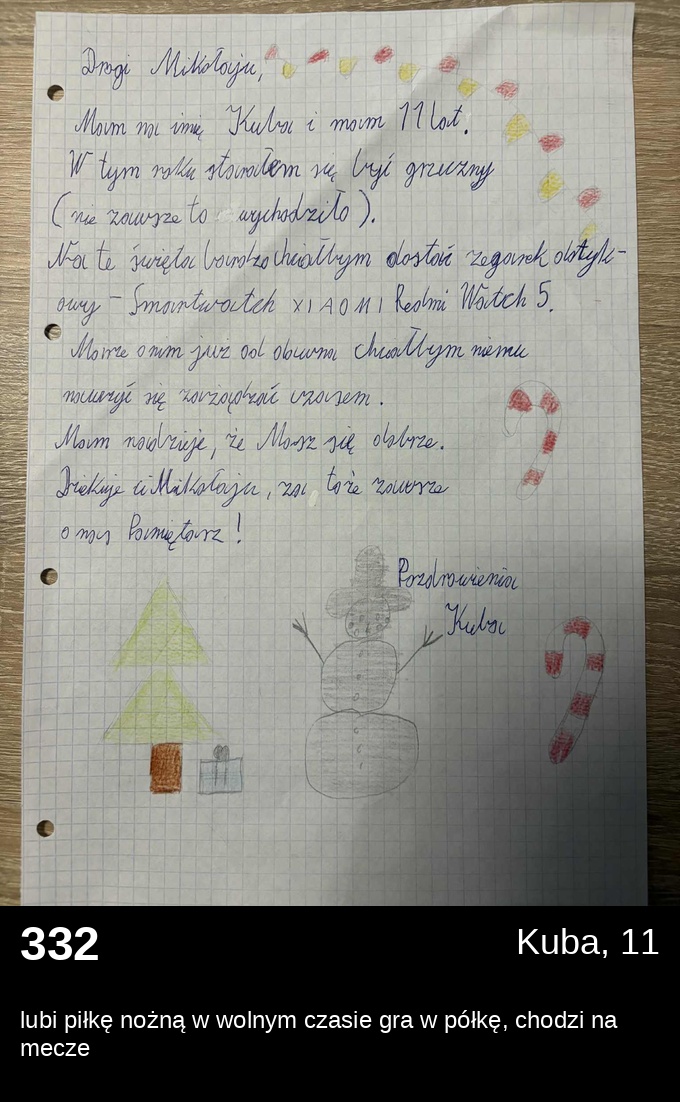 Drogi Mikołaju,
Mam na imię Kuba i mam 11 lat.
W tym roku starałem się być grzeczny
(nie zawsze to wychodziło).
Na te święta bardzo chciałbym dostać zegarek dotyk-
owy - Smartwatch XIAOMI Redmi Watch 5.
Marze o nim już od dawna chciałbym niemu
nauczyć się zarządzać czasem.
Mam nadzieje, że Masz się dobrze.
Dziekuje ci Mikołaju, za to że zawsze
o nas Pamiętasz!
Pozdrowienia
Kuba
332
Kuba, 11
lubi piłkę nożną w wolnym czasie gra w półkę, chodzi na
mecze